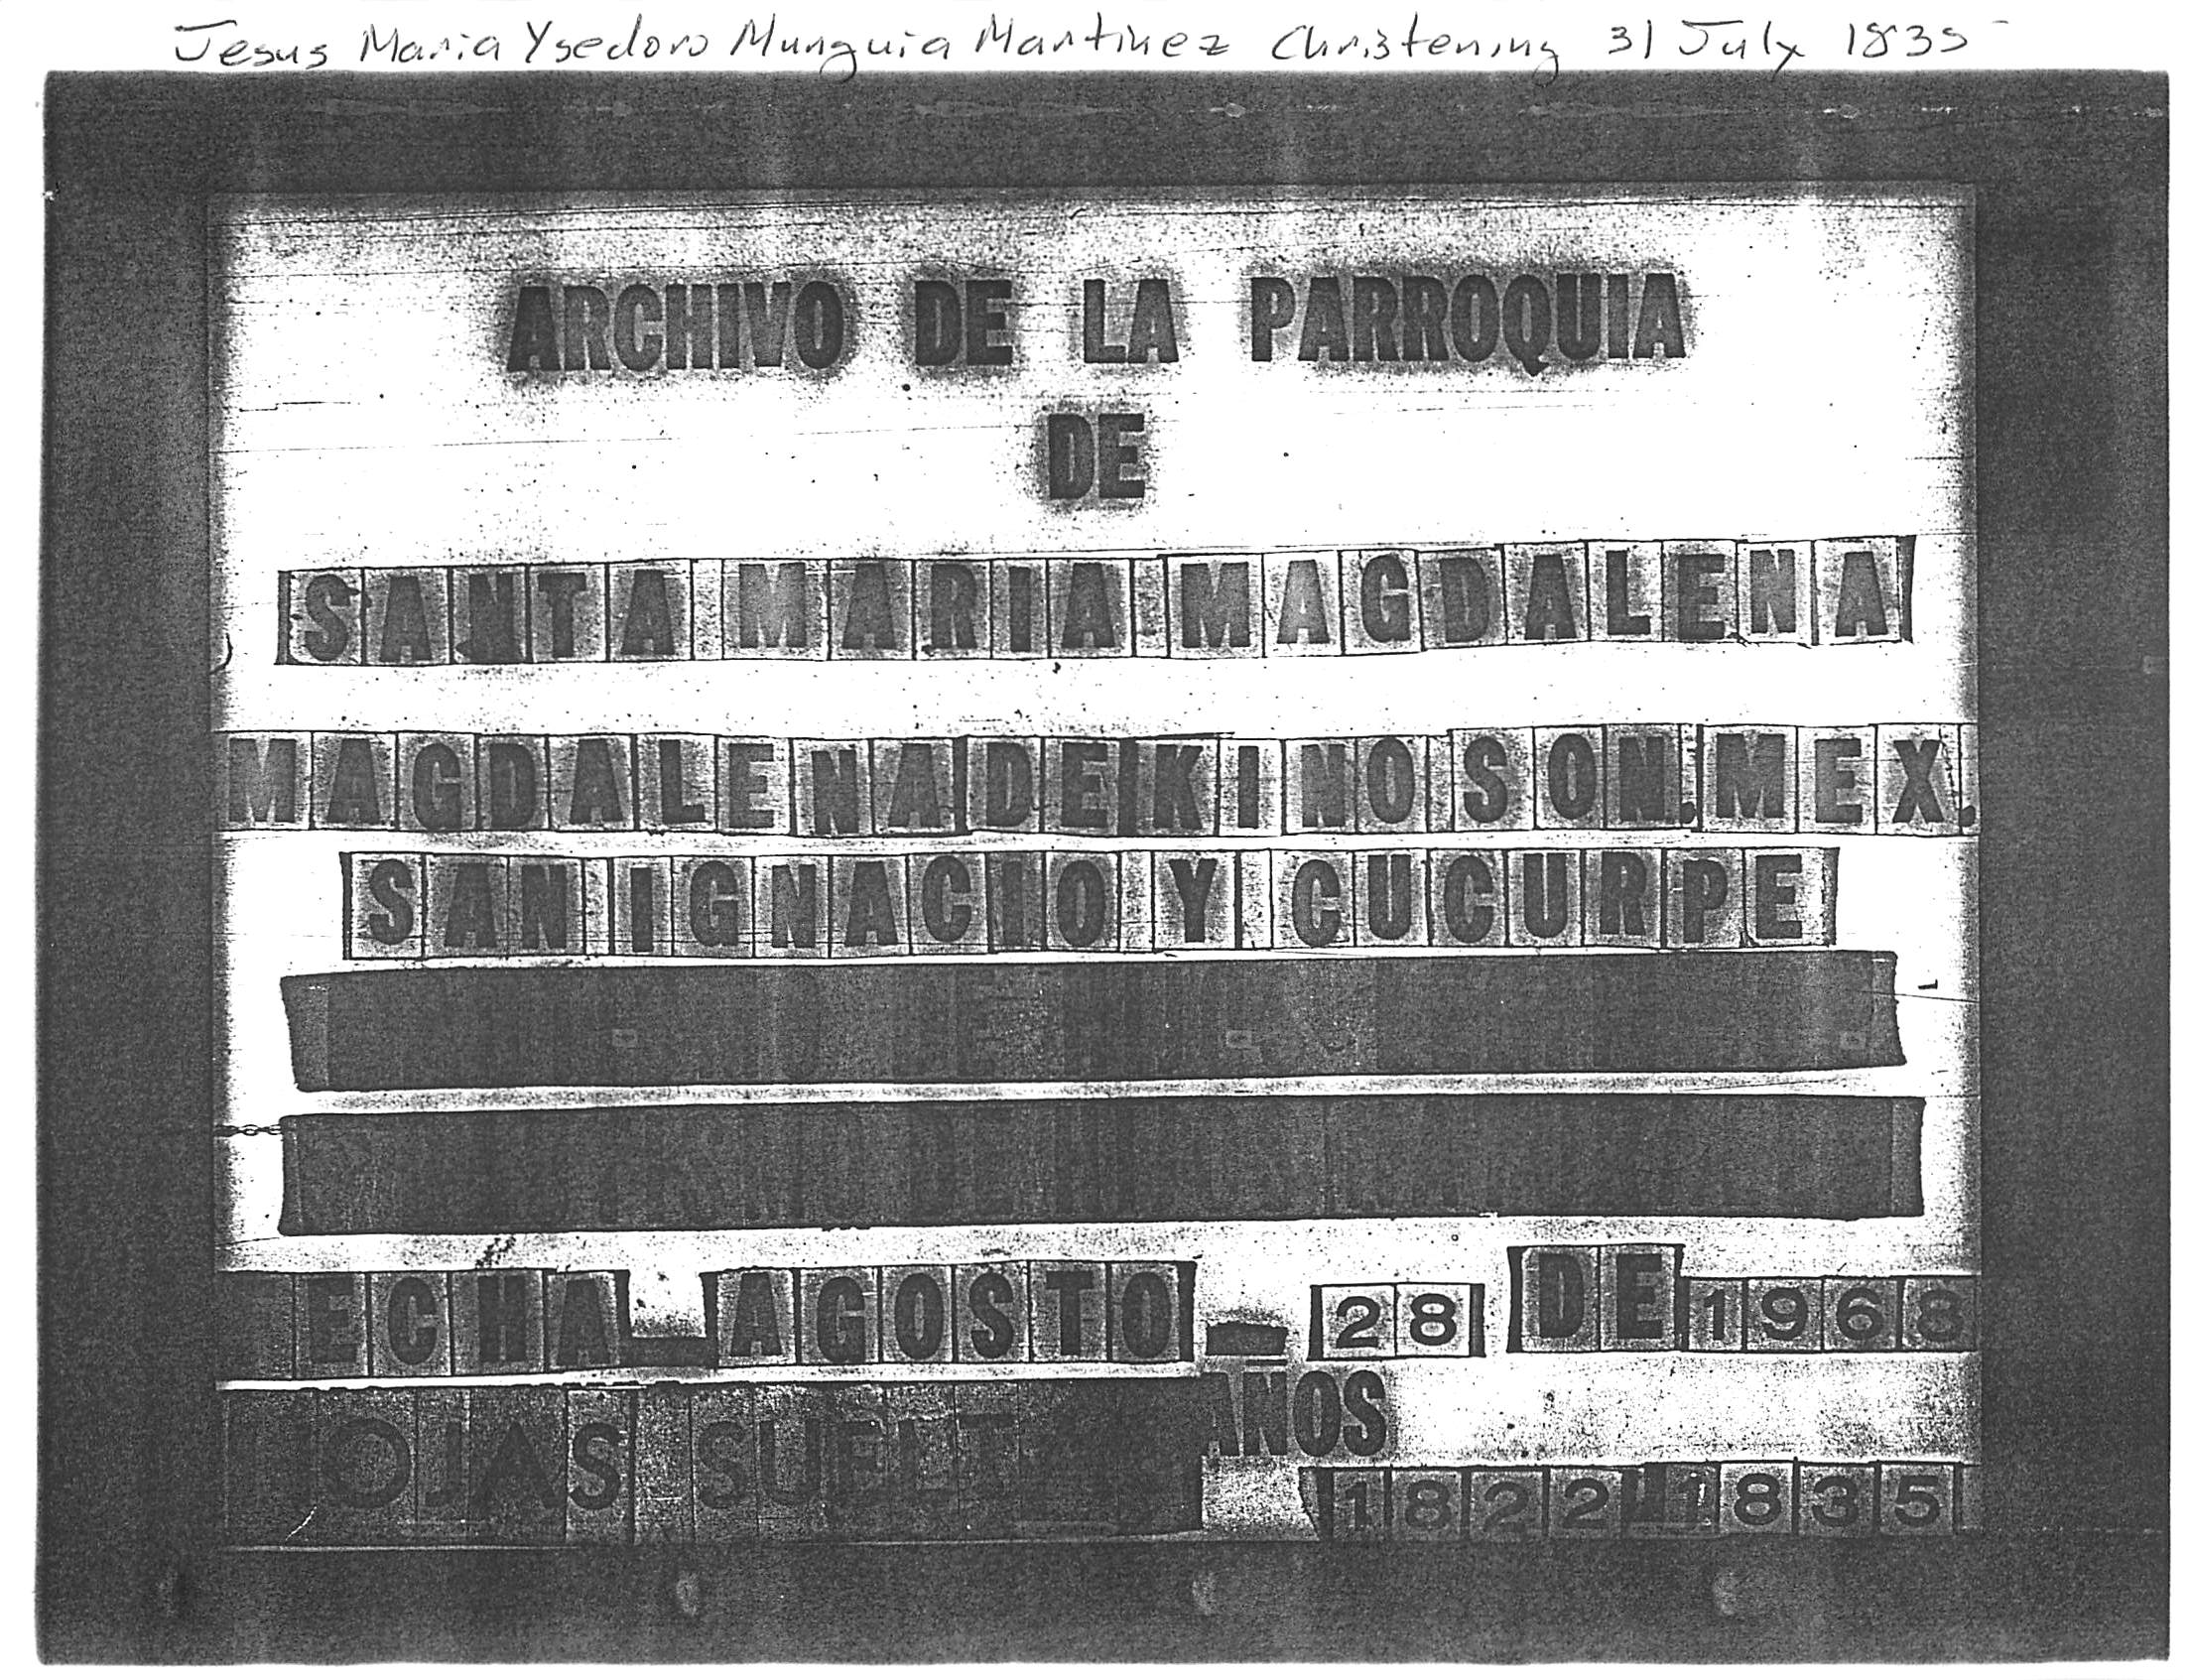 Jesus Maria Ysedoro Munguia Martinez Christening 31 July 1835
ARCHIVO DE LA PARROQUIA
DE
SANTA MARIA MAGDALENA
MAGDALENA DE KINO SON. MEX.
SAN IGNACIO Y CUCURPE
ECHA AGOSTO 28 DE 1968
OJAS SUELT AÑOS
1822 1835